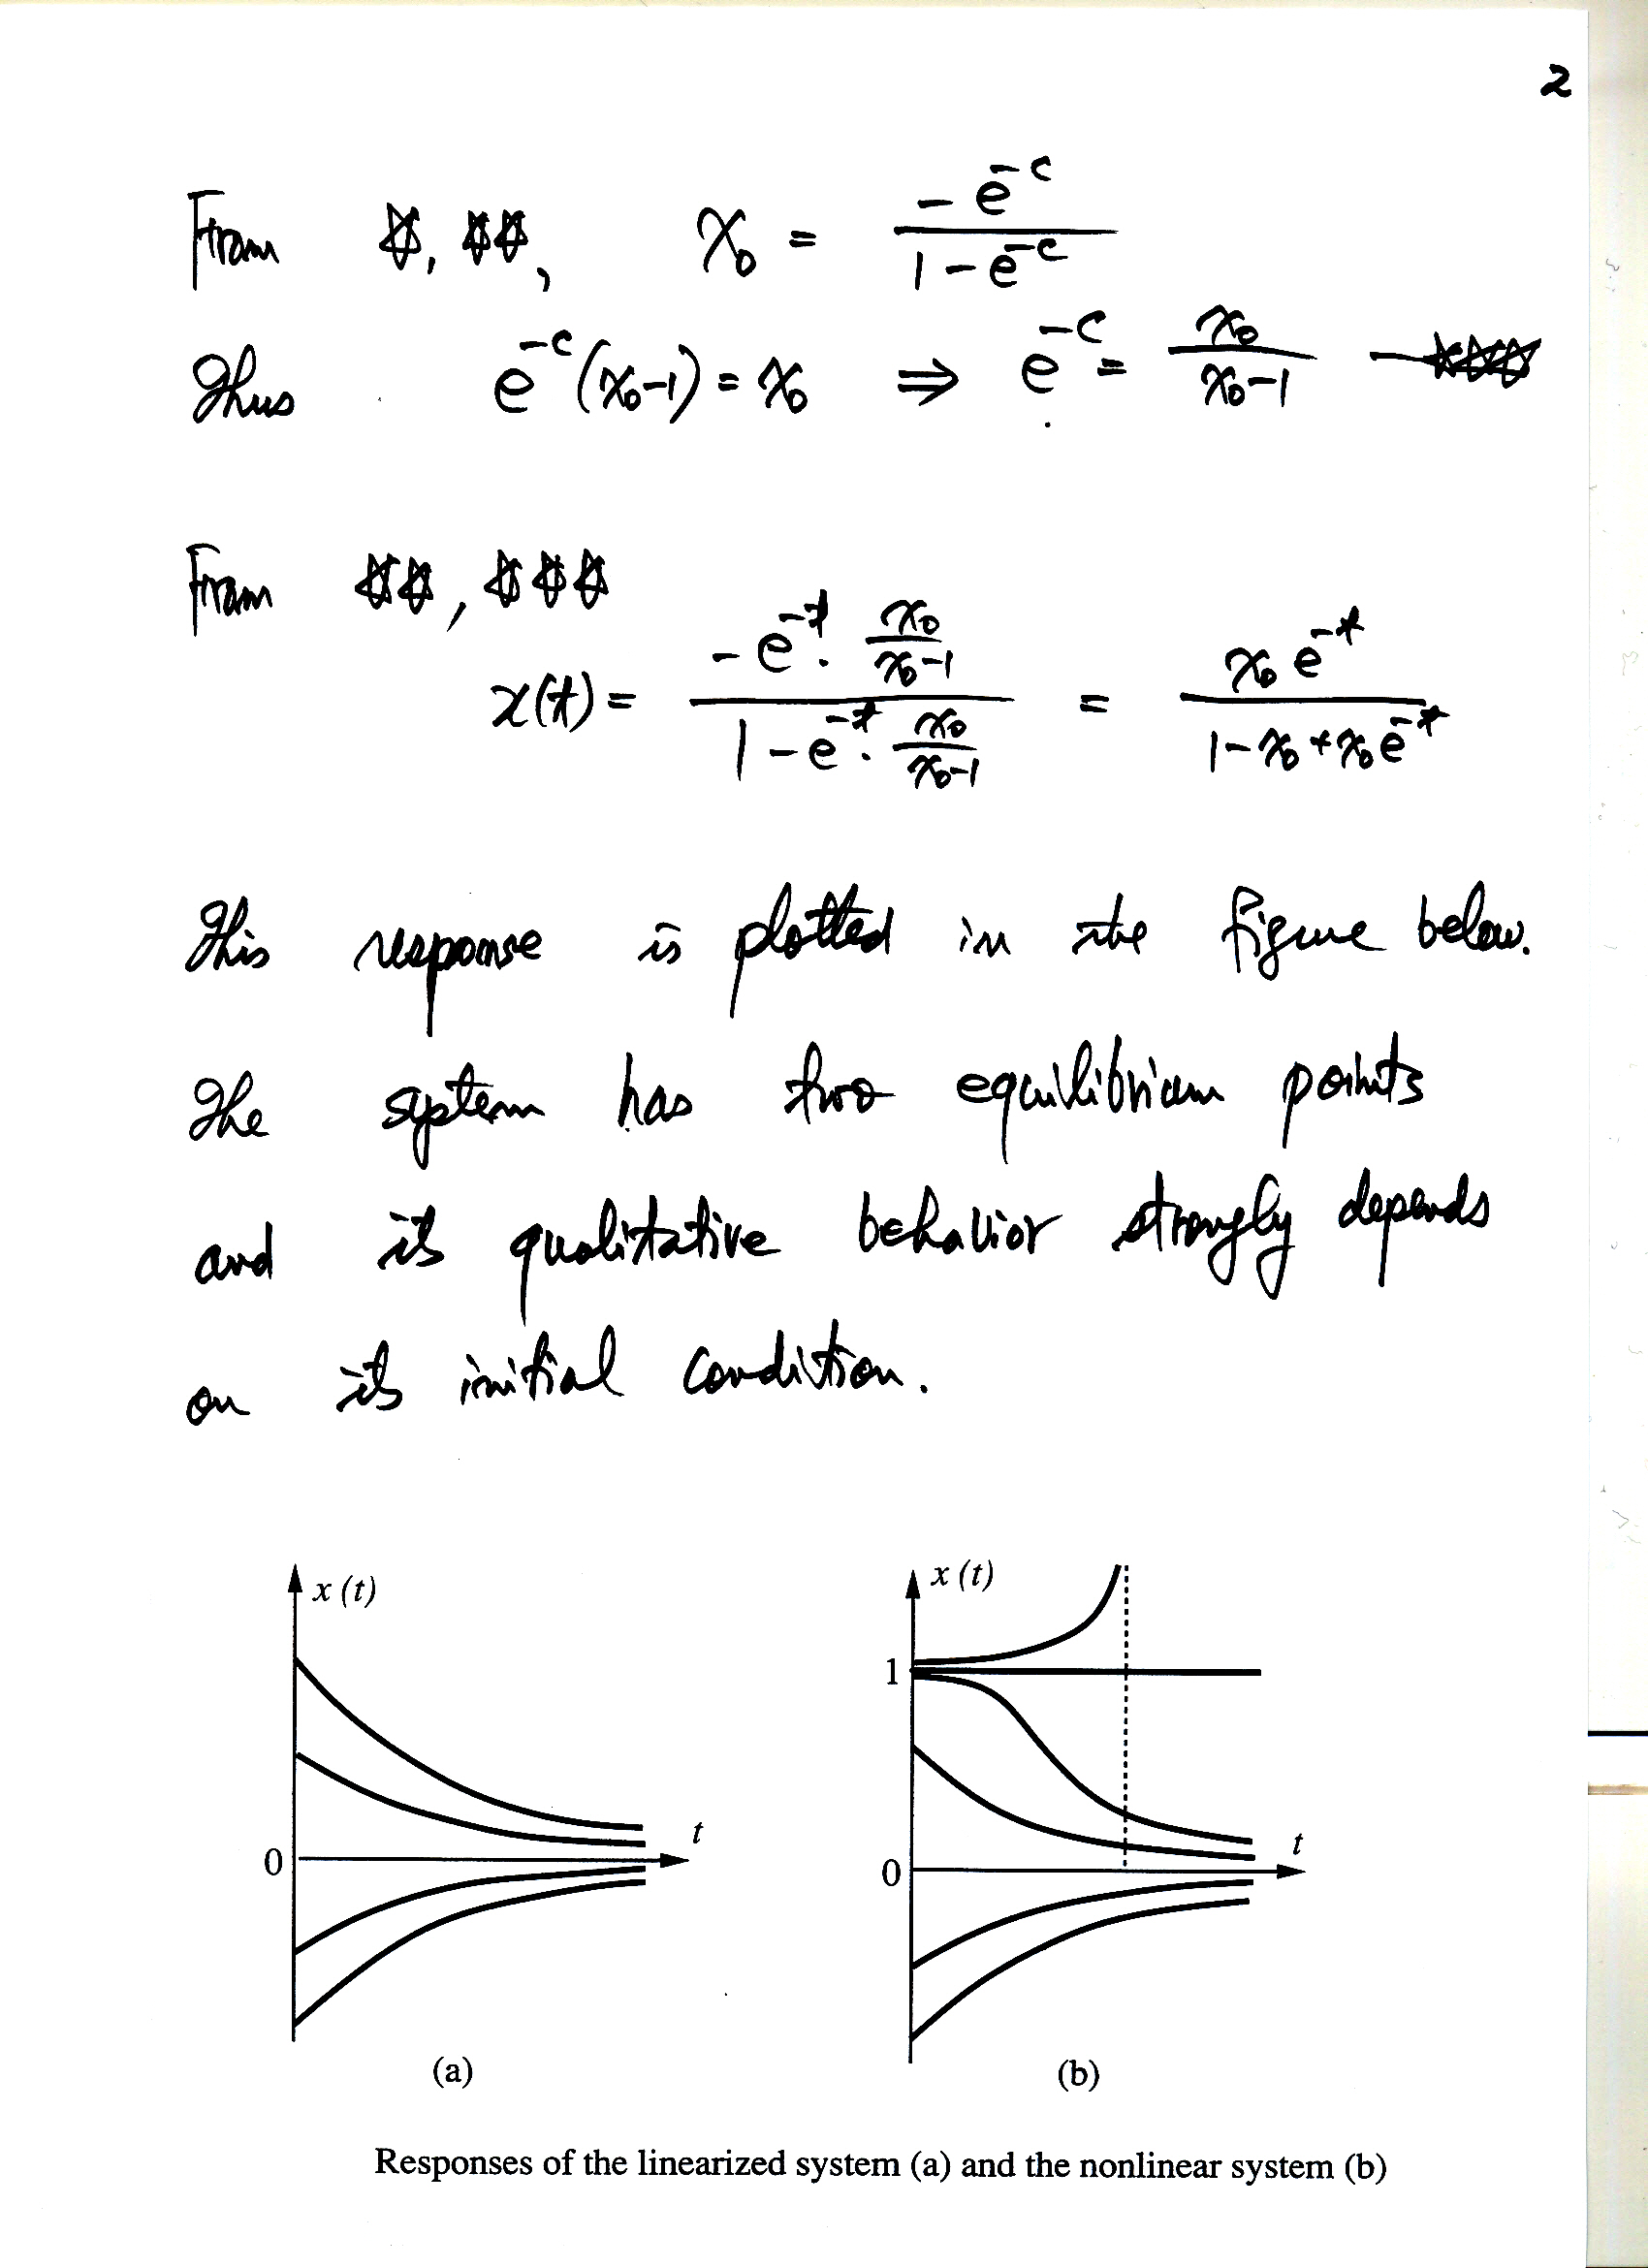 2
From ☆, ☆☆, x₀ = -e^{-c} / (1 - e^{-c})
Thus e^{-c}(x₀-1) = x₀ ⇒ e^{-c} = x₀ / (x₀-1) — ☆☆☆
From ☆☆, ☆☆☆
x(t) = (-e^{-t} · x₀/(x₀-1)) / (1 - e^{-t} · x₀/(x₀-1)) = x₀ e^{-t} / (1 - x₀ + x₀ e^{-t})
This response is plotted in the figure below.
The system has two equilibrium points
and its qualitative behavior strongly depends
on its initial condition.
x (t)
t
0
(a)
x (t)
1
t
0
(b)
Responses of the linearized system (a) and the nonlinear system (b)